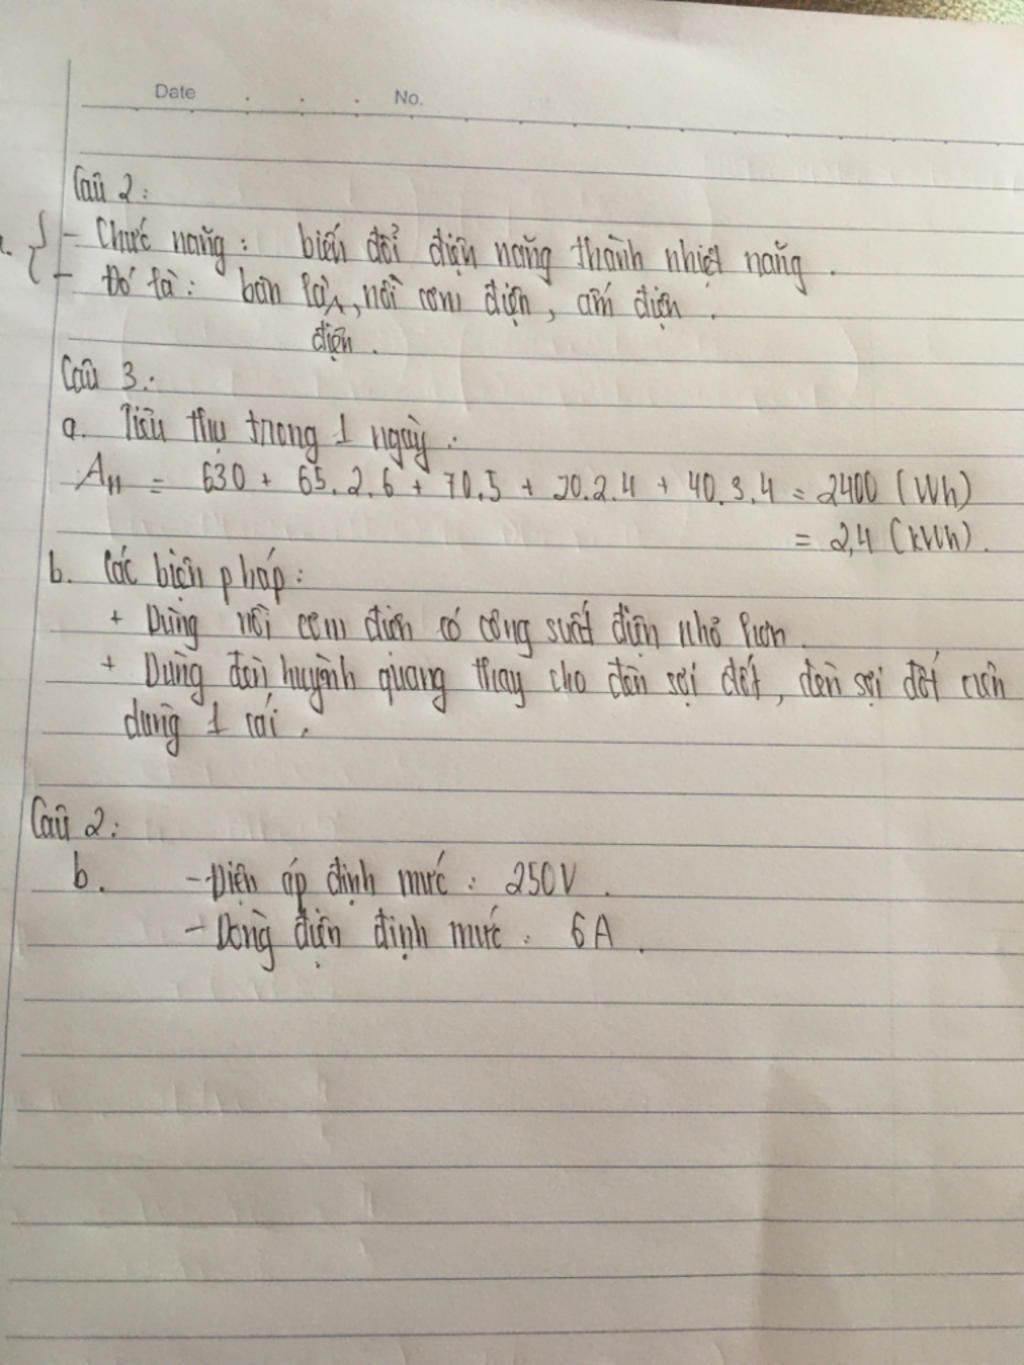 Date . . . No.
Câu 2:
- Chức năng: biến đổi điện năng thành nhiệt năng.
- Đó là: bàn là, nồi cơm điện, ấm điện.
điện.
Câu 3:
a. Tiêu thụ trong 1 ngày:
= 630 + 65.2.6 + 70.5 + 20.2.4 + 40.3.4 = 2400 (Wh)
= 2,4 (kWh).
b. Các biện pháp:
+ Dùng nồi cơm điện có công suất điện nhỏ hơn.
+ Dùng đèn huỳnh quang thay cho đèn sợi đốt, đèn sợi đốt
dùng 1 cái.
Câu 2:
b. - Điện áp định mức: 250V.
- Dòng điện định mức: 6A.